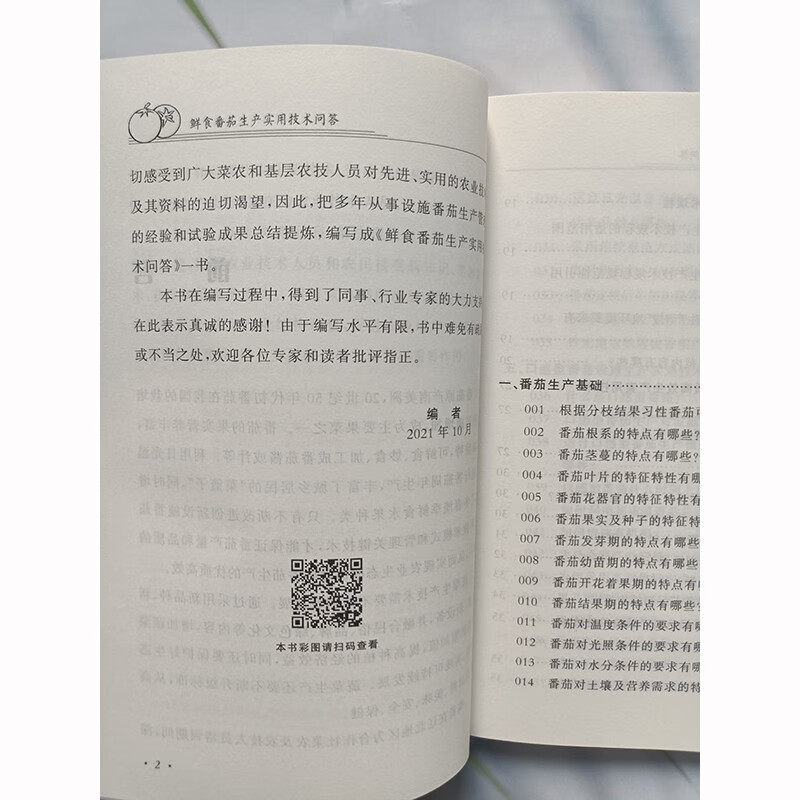 鲜食番茄生产实用技术问答
切感受到广大菜农和基层农技人员对先进、实用的农业技
及其资料的迫切渴望,因此,把多年从事设施番茄生产管
的经验和试验成果总结提炼,编写成《鲜食番茄生产实用
术问答》一书。
本书在编写过程中,得到了同事、行业专家的大力支
在此表示真诚的感谢!由于编写水平有限,书中难免有
或不当之处,欢迎各位专家和读者批评指正。
编 者
2021年10月
本书彩图请扫码查看
· 2 ·
一、番茄生产基础
001 根据分枝结果习性番茄可
002 番茄根系的特点有哪些?
003 番茄茎蔓的特点有哪些?
004 番茄叶片的特征特性有哪
005 番茄花器官的特征特性有
006 番茄果实及种子的特征特
007 番茄发芽期的特点有哪些
008 番茄幼苗期的特点有哪些
009 番茄开花着果期的特点有
010 番茄结果期的特点有哪些?
011 番茄对温度条件的要求有
012 番茄对光照条件的要求有
013 番茄对水分条件的要求有哪
014 番茄对土壤及营养需求的特